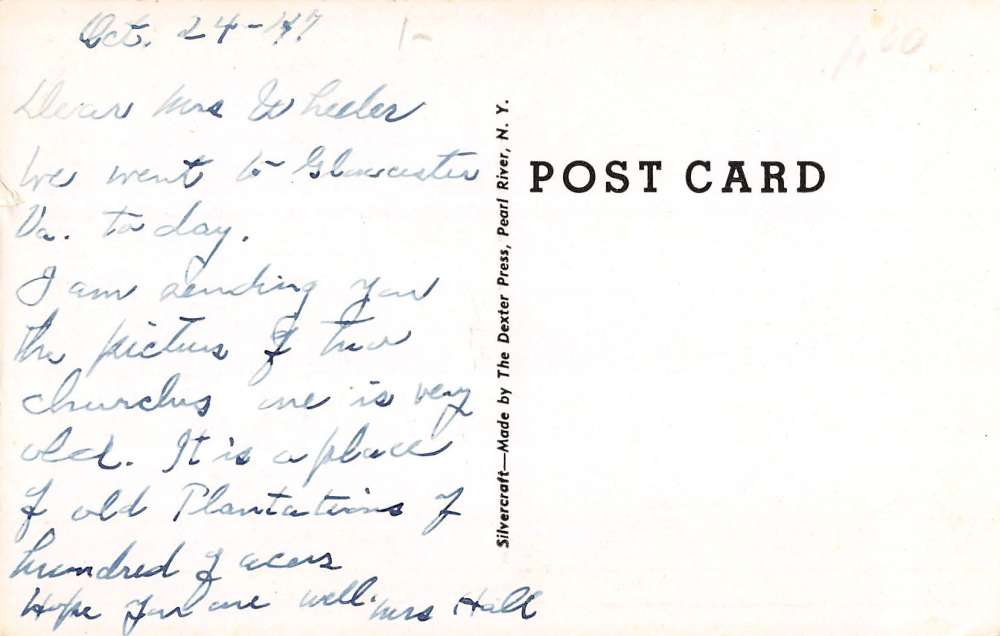 Oct. 24-47
1-
1.00
Dear Mrs Wheeler
We went to Gloucester
Va. to day.
I am sending you
the picturs of two
churches one is very
old. It is a place
of old Plantations of
hundred of acers
Hope you are well. Mrs Hall
Silvercraft—Made by The Dexter Press, Pearl River, N. Y.
POST CARD